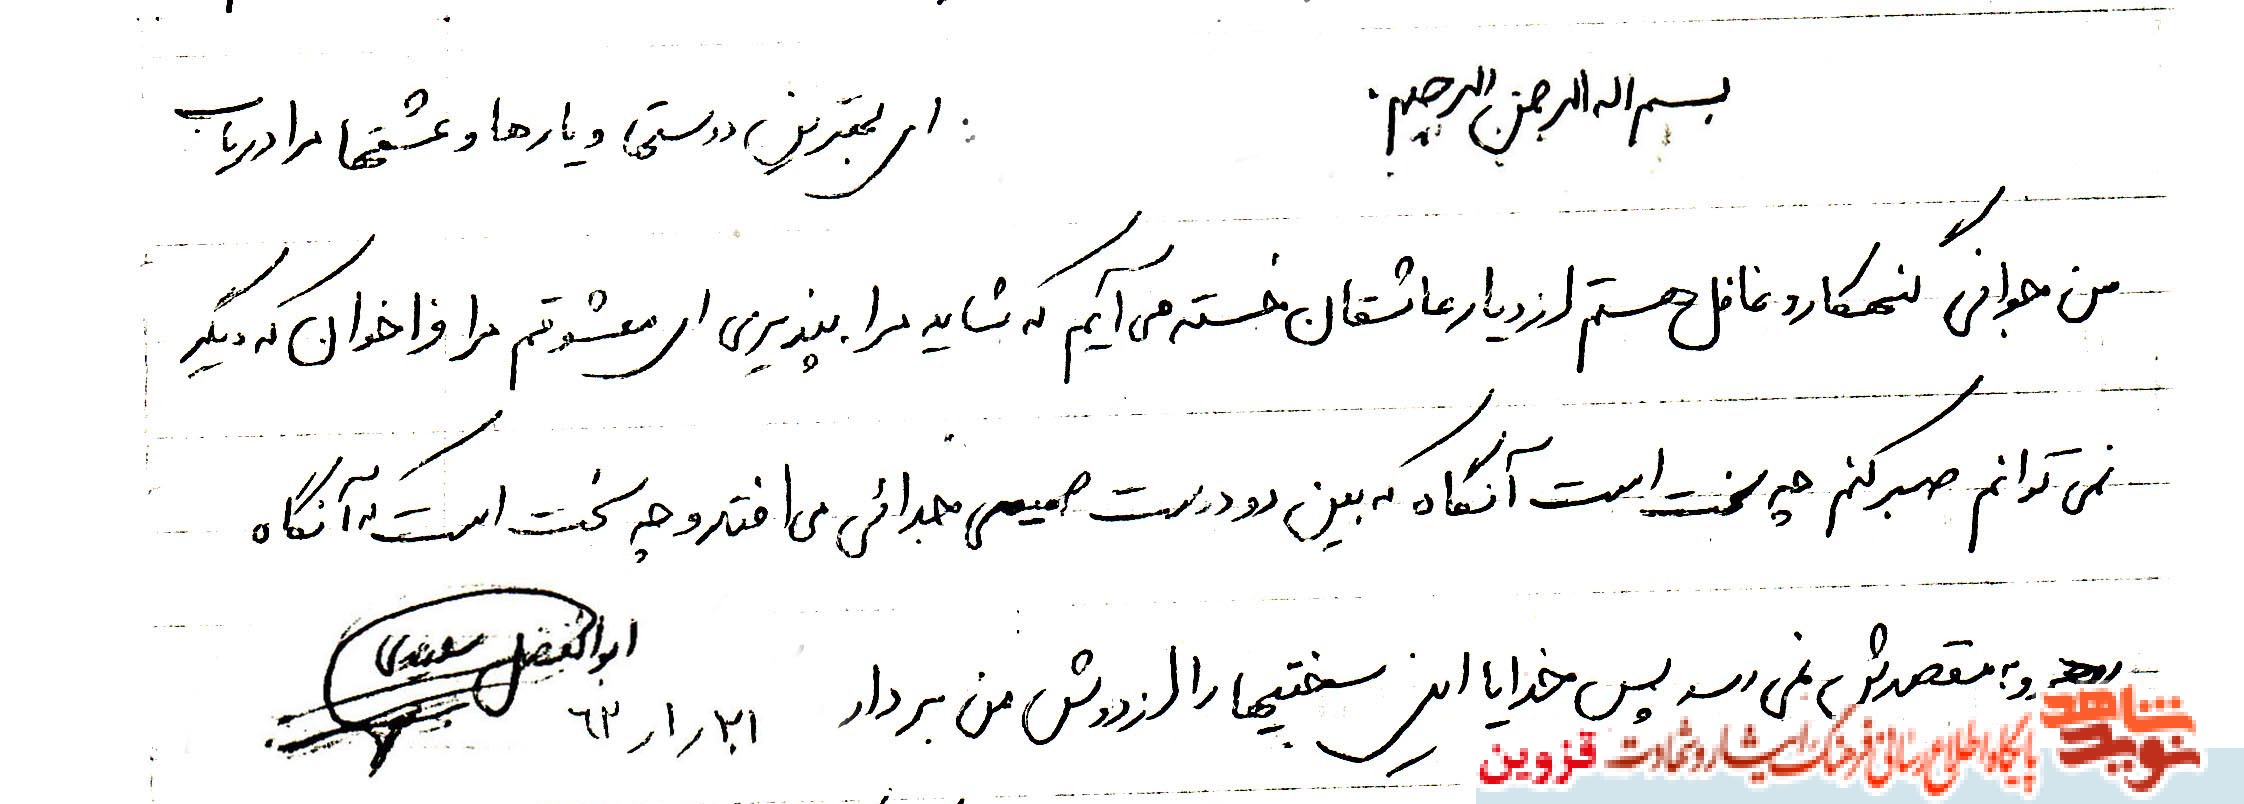 بسم اله الرحمن الرحیم
ای بهترین دوستیها و یارها و عشقها مرا دریاب
من جوانی گنهکار و غافل هستم از دیار عاشقان خسته می آیم که شاید مرا بپذیری ای معشوقم مرا فراخوان که دیگر
نمی توانم صبر کنم چه سخت است آنگاه که بین دو دوست صمیمی جدائی می افتد و چه سخت است که آنگاه
و به مقصدش نمی رسد پس خدایا این سختیها را از دوش من بردار
ابوالفضل سعیدی
شاهد
نوید
پایگاه اطلاع رسانی فرهنگ ایثار و شهادت قزوین